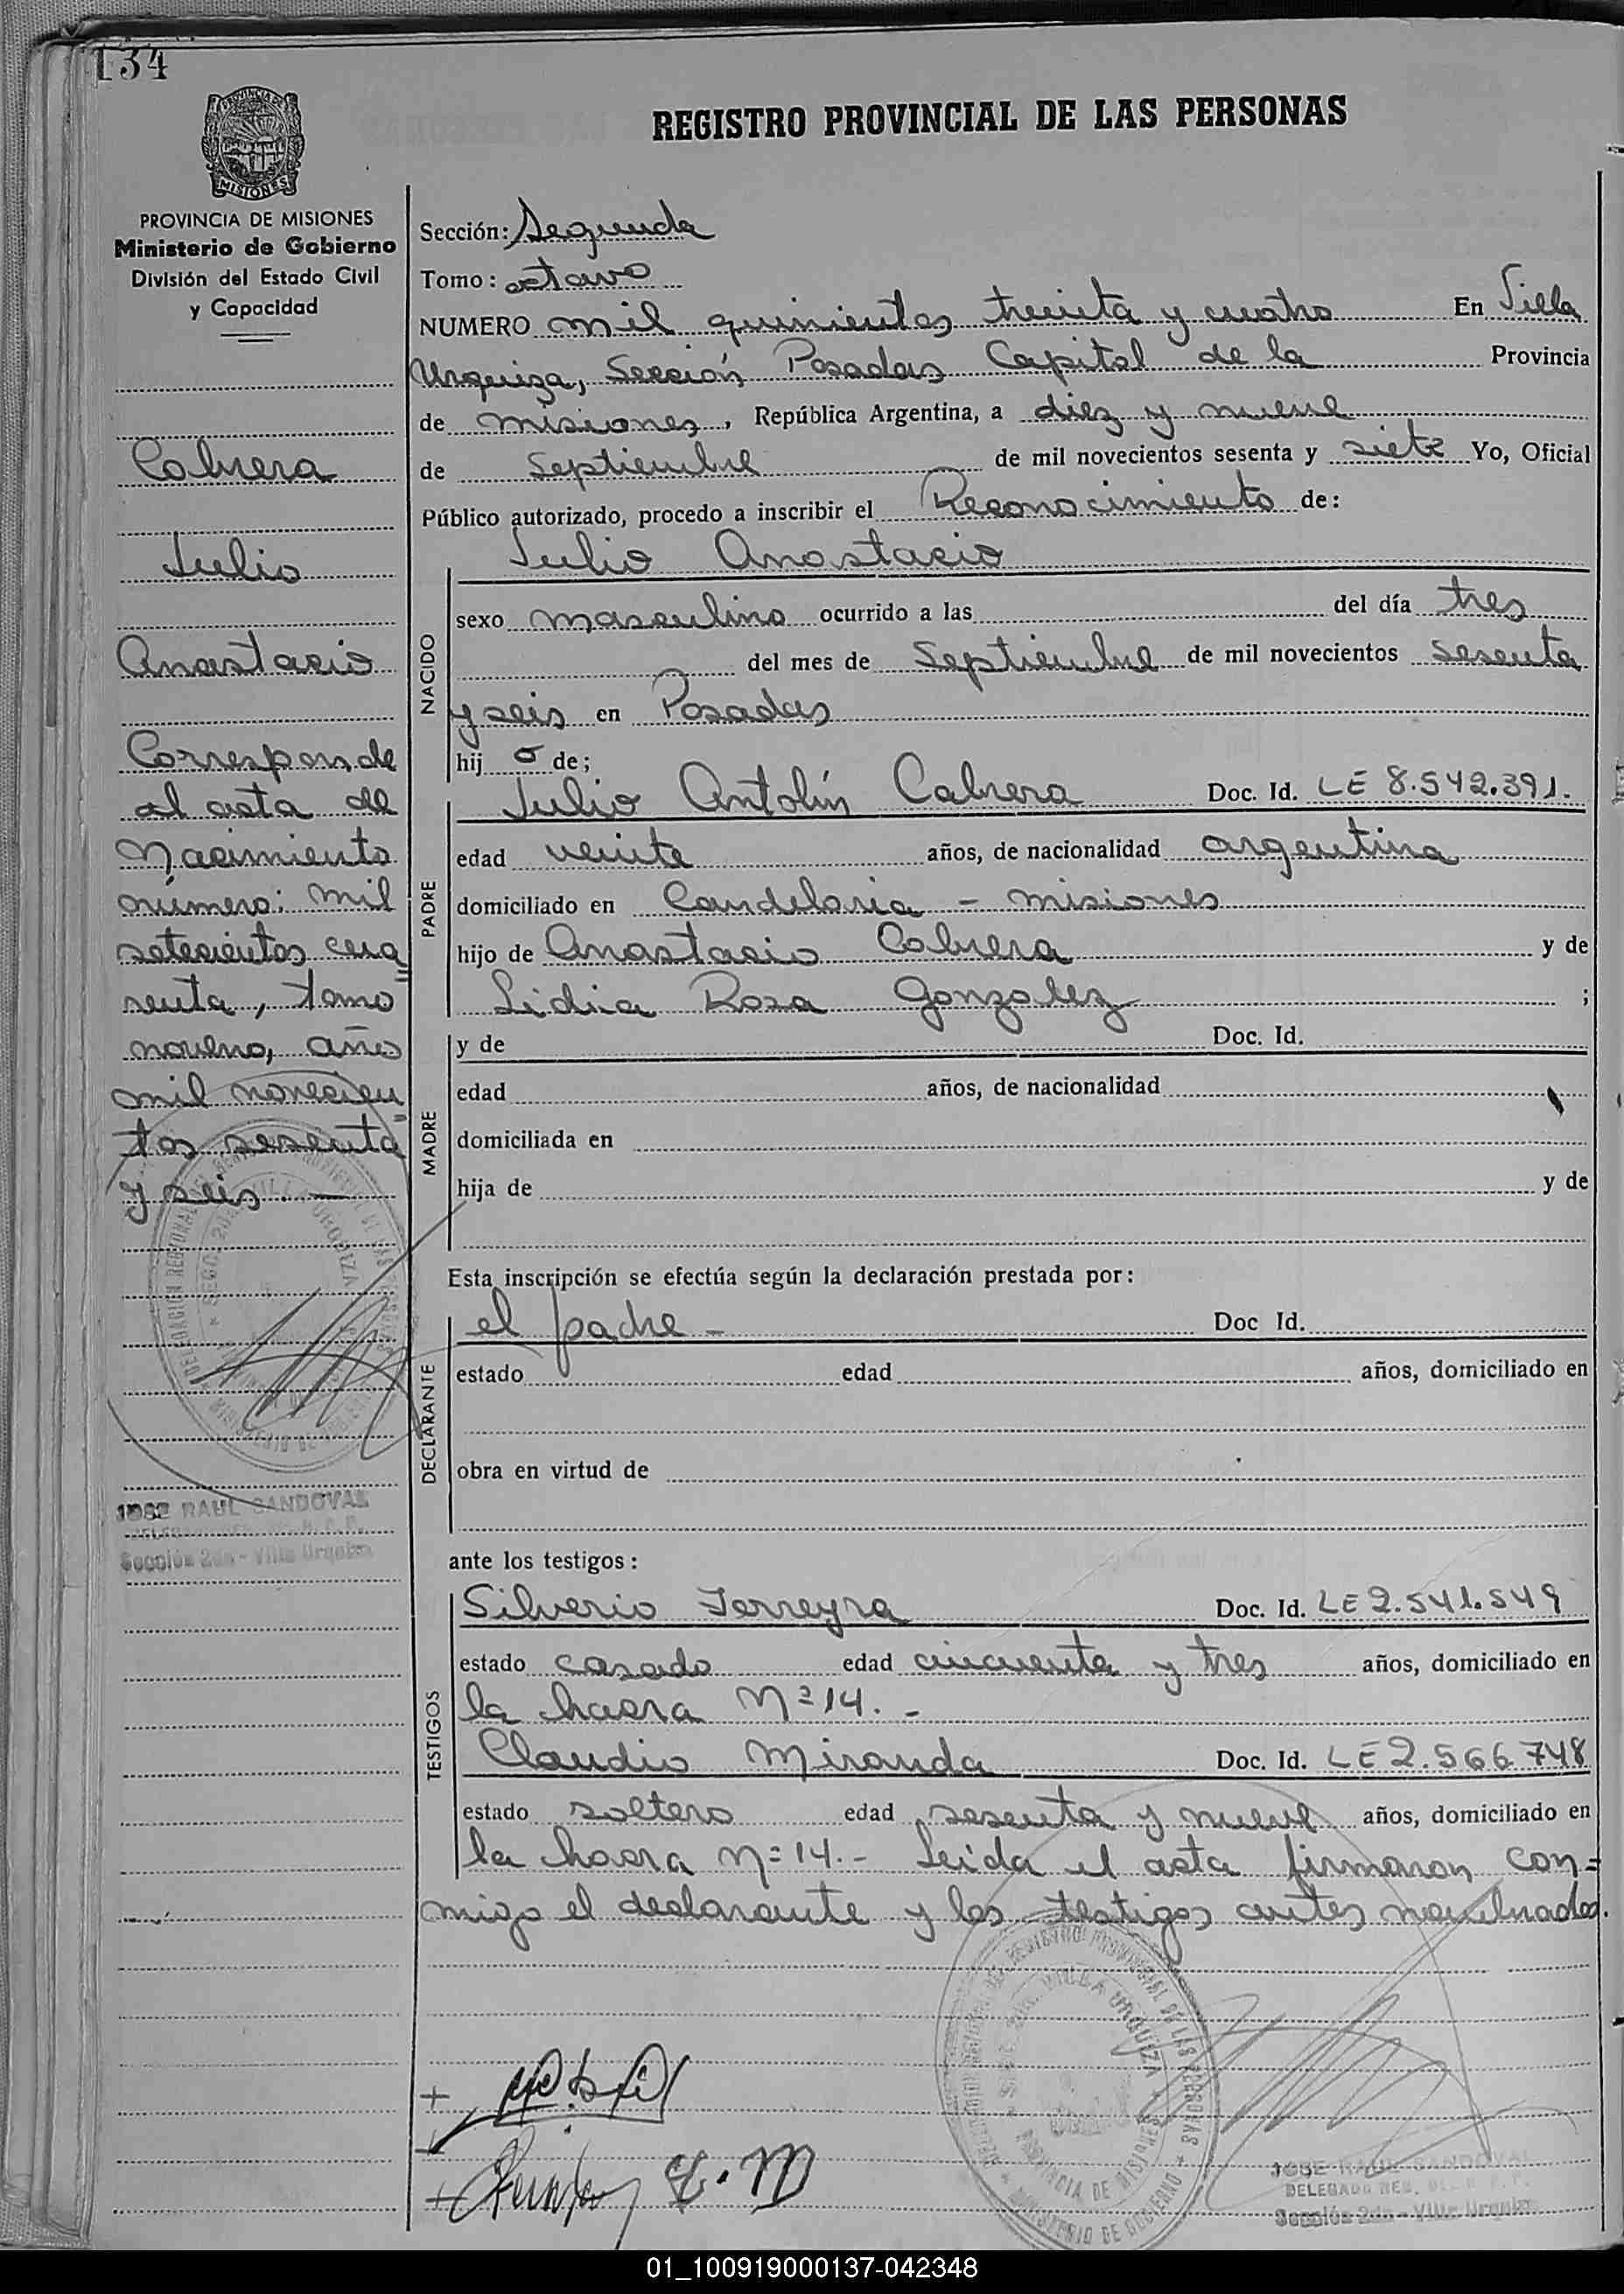 134
PROVINCIA DE
MISIONES
PROVINCIA DE MISIONES
Ministerio de Gobierno
División del Estado Civil
y Capacidad
Cabrera
Julio
Anastacio
Corresponde
al acta de
Nacimiento
número: mil
setecientos cua=
renta, tomo
noveno, año
mil novecien=
tos sesenta
y seis. —
JOSE RAUL SANDOVAL
Sección 2da - Villa Urquiza
REGISTRO PROVINCIAL DE LAS PERSONAS
Sección: Segunda
Tomo: octavo
NUMERO mil quinientos treinta y cuatro En Villa
Urquiza, Sección Posadas Capital de la Provincia
de misiones, República Argentina, a diez y nueve
de Septiembre de mil novecientos sesenta y siete Yo, Oficial
Público autorizado, procedo a inscribir el Reconocimiento de:
Julio Anastacio
NACIDO
sexo masculino ocurrido a las del día tres
del mes de Septiembre de mil novecientos sesenta
y seis en Posadas
hij o de;
PADRE
Julio Antolín Cabrera Doc. Id. LE 8.542.391.
edad veinte años, de nacionalidad argentina
domiciliado en Candelaria - misiones
hijo de Anastacio Cabrera y de
Lidia Rosa Gonzalez ;
MADRE
y de Doc. Id.
edad años, de nacionalidad
domiciliada en
hija de y de
Esta inscripción se efectúa según la declaración prestada por:
DECLARANTE
el padre - Doc Id.
estado edad años, domiciliado en
obra en virtud de
ante los testigos:
TESTIGOS
Silverio Ferreyra Doc. Id. LE 2.541.549
estado casado edad cincuenta y tres años, domiciliado en
la chacra Nº 14. -
Claudio Miranda Doc. Id. LE 2.566.748
estado soltero edad sesenta y nueve años, domiciliado en
la chacra nº 14.- Leida el acta firmaron con=
migo el declarante y los testigos antes nombrados.
C. M
REGISTRO PROVINCIAL DE LAS PERSONAS
VILLA URQUIZA
PROVINCIA DE MISIONES
MINISTERIO DE GOBIERNO
JOSE RAUL SANDOVAL
DELEGADO REG.
Sección 2da - Villa Urquiza
01_100919000137-042348